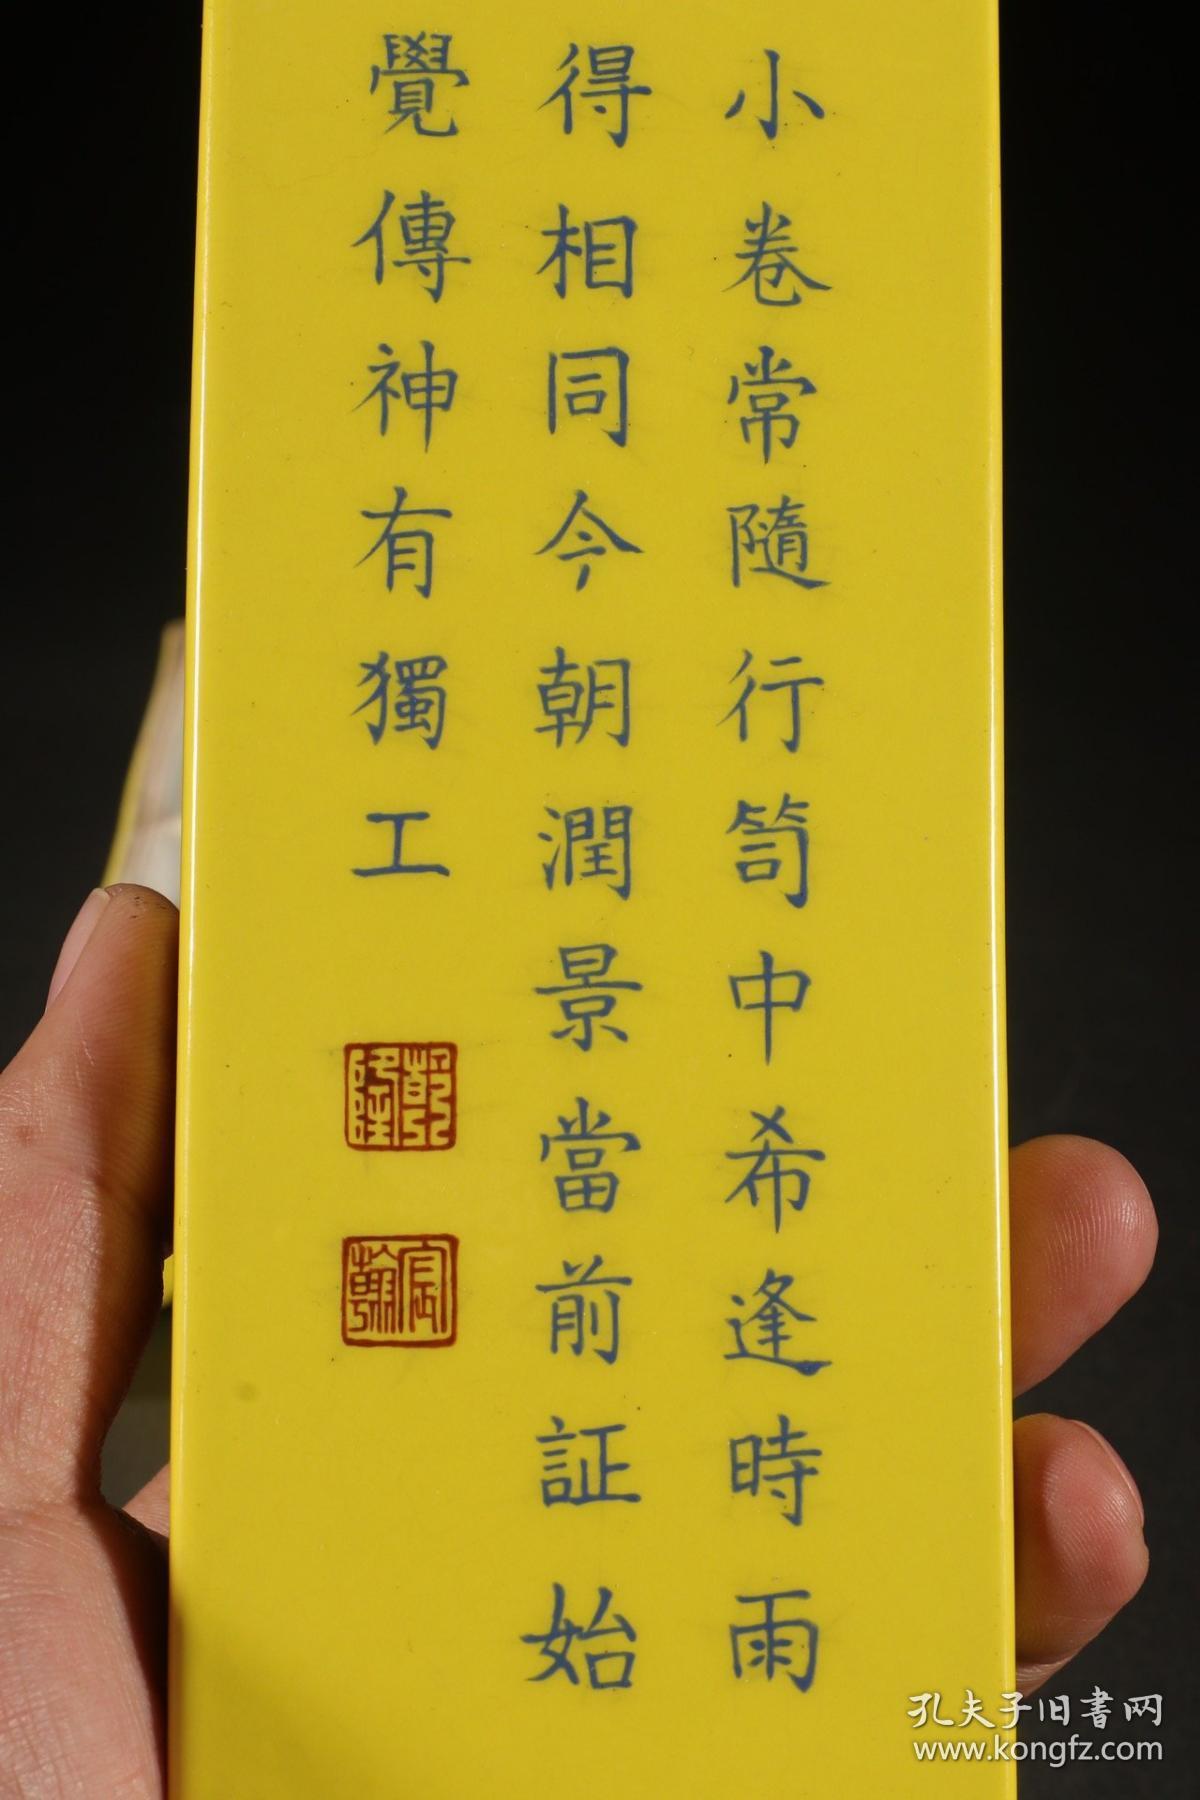 小卷常隨行笥中希逢時雨
得相同今朝潤景當前証始
覺傳神有獨工
乾隆
宸翰
孔夫子旧书网
www.kongfz.com